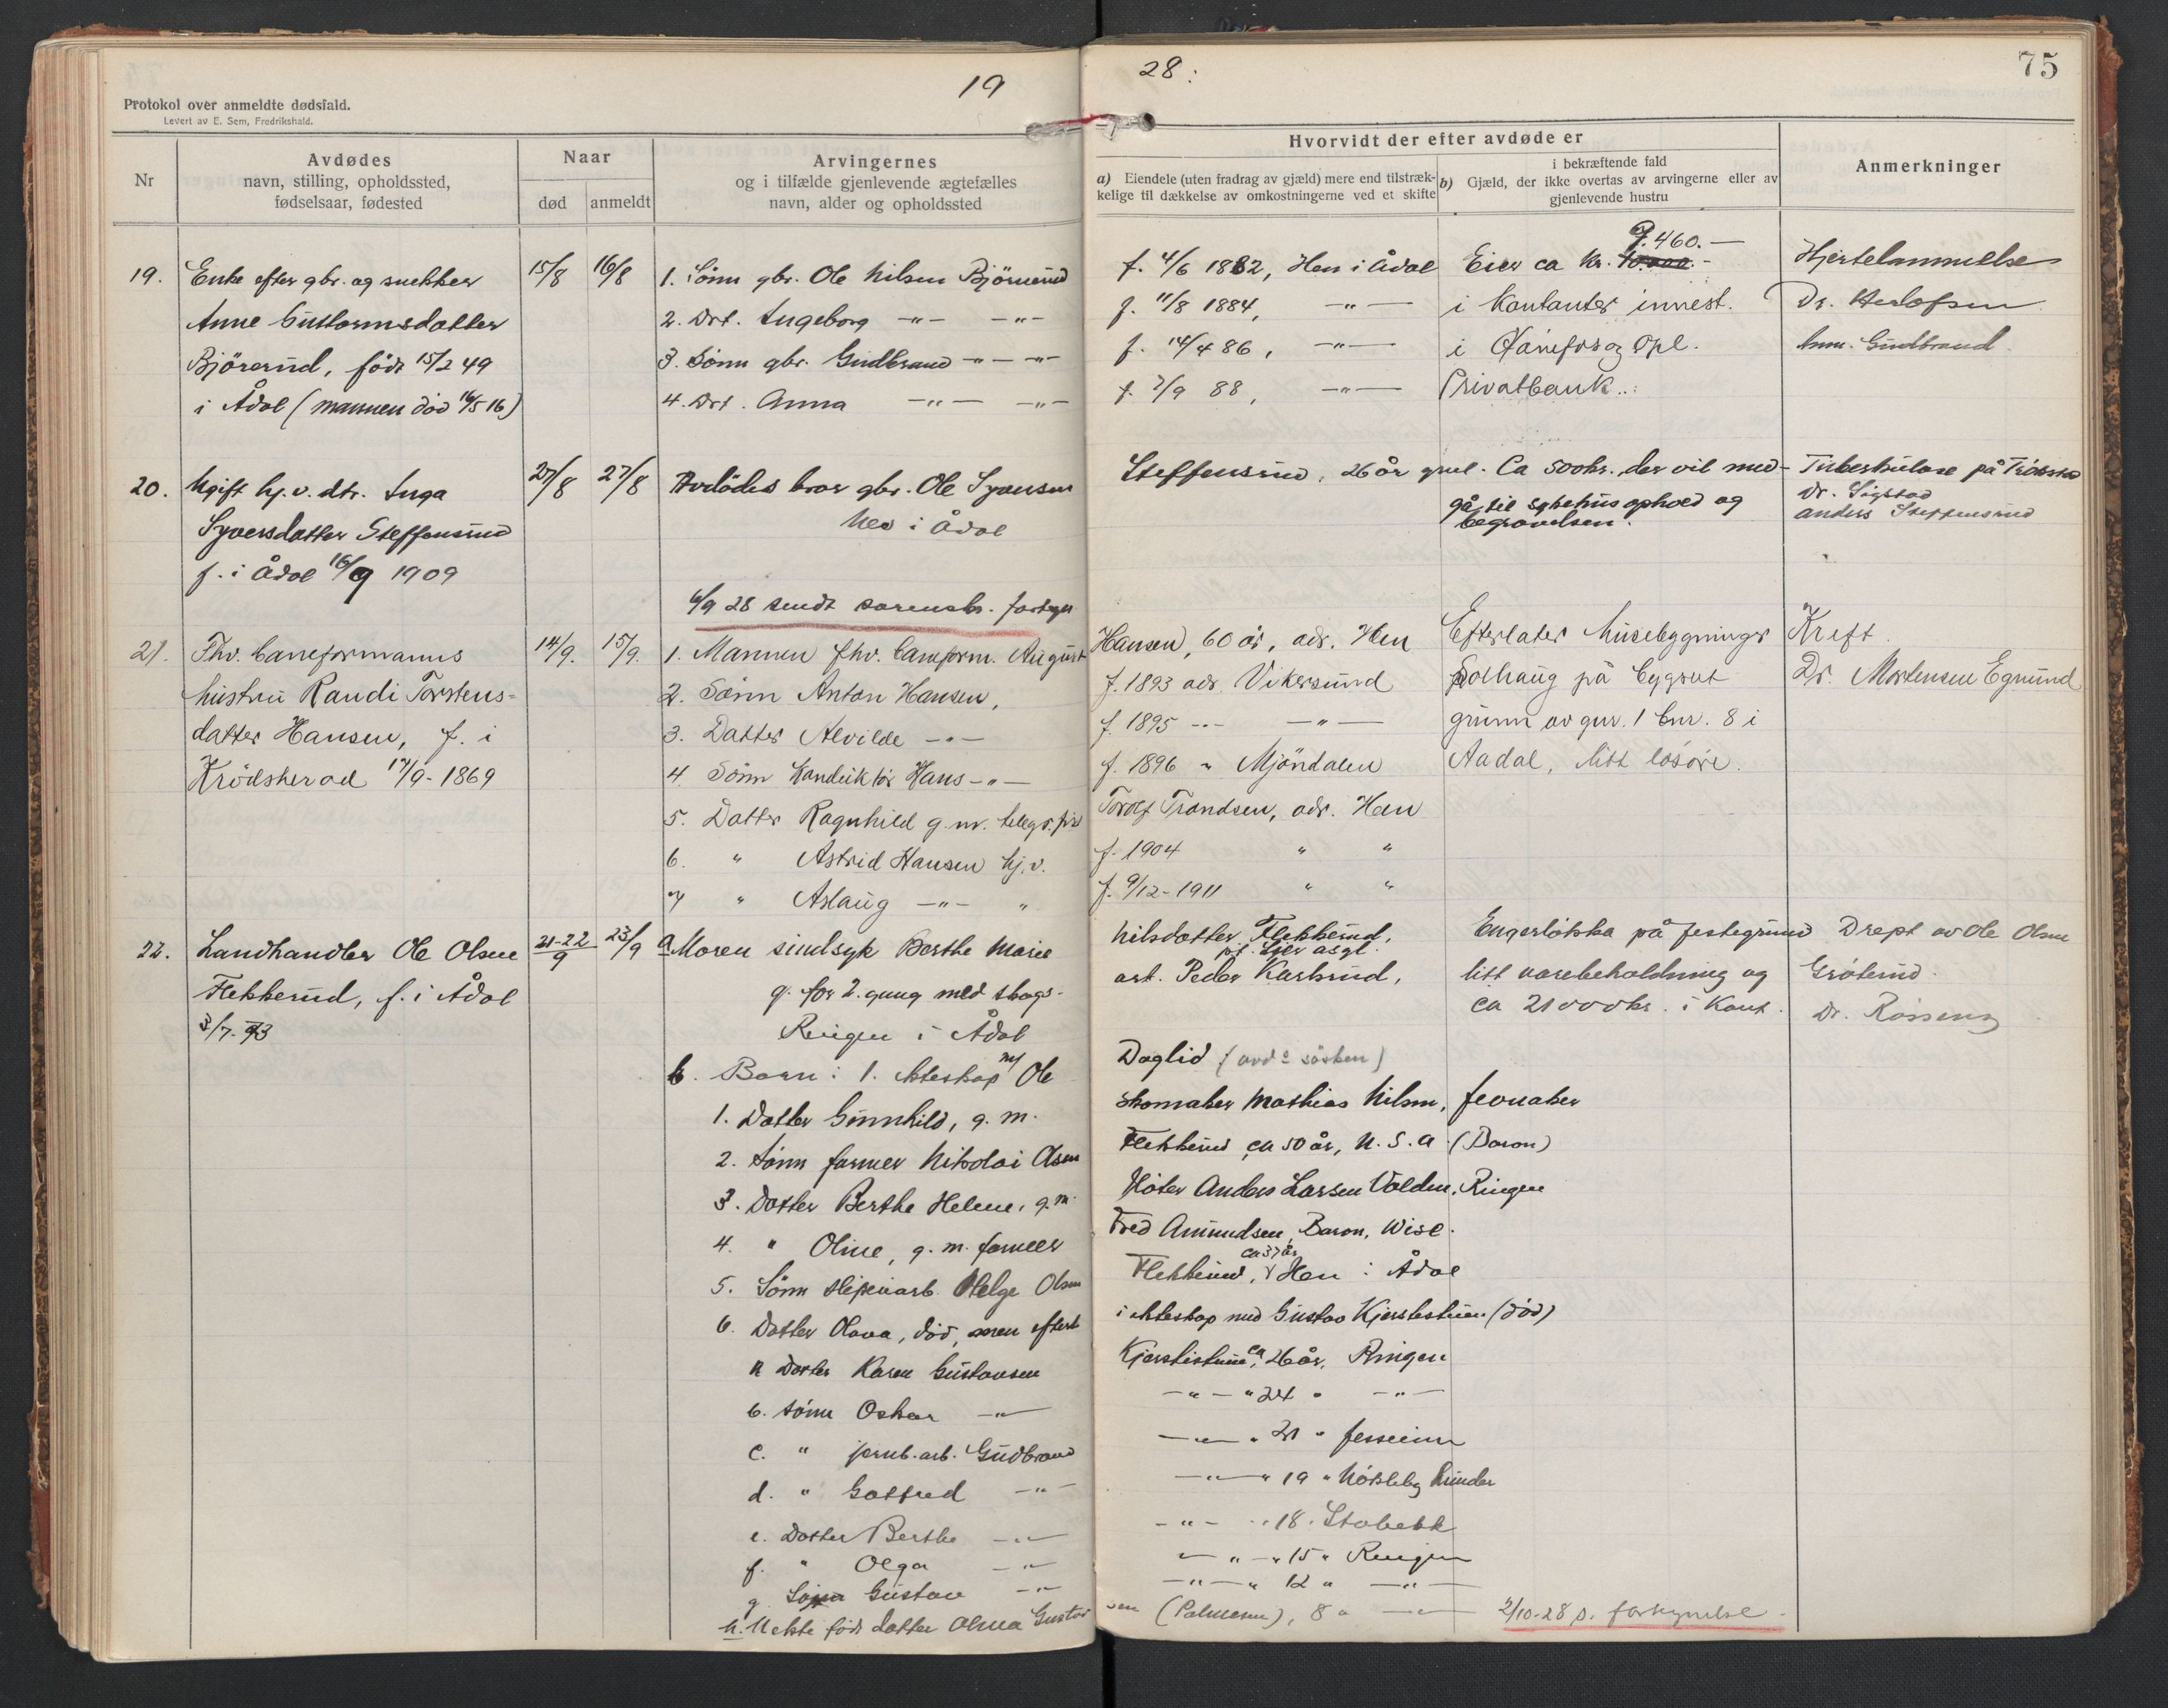 19
28:
75
Protokol over anmeldte dødsfald.
Levert av E. Sem, Fredrikshald.
Nr
Avdødes
navn, stilling, opholdssted,
fødselsaar, fødested
Naar
død
anmeldt
Arvingernes
og i tilfælde gjenlevende ægtefælles
navn, alder og opholdssted
Hvorvidt der efter avdøde er
a) Eiendele (uten fradrag av gjæld) mere end tilstræk-
kelige til dækkelse av omkostningerne ved et skifte
i bekræftende fald
b) Gjæld, der ikke overtas av arvingerne eller av
gjenlevende hustru
Anmerkninger
19.
Enke efter gbr. og snekker
Anne Guttormsdatter
Björerud, född 15/2 49
i Ådal (mannen död 16/5 16)
15/8
16/8
1. Sönn gbr. Ole Nilsen Björnerud
2. Dat. Ingeborg -"- -"-
3. Sönn gbr. Gudbrand -"- -"-
4. Dat. Anna -"- -"-
f. 4/6 1882, Hen i Ådal
f. 11/8 1884, -"-
f. 14/4 86, -"-
f. 7/9 88, -"-
7.460.-
Eier ca kr. 10.000.-
i kontanter innest.
i Hønefos og Opl.
Privatbank..
Hjertelammelse
Dr. Herlofsen
Anm. Gudbrand
20.
Ugift hj.v. dtr. Inga
Syversdatter Steffensrud
f. i Ådal 16/9 1909
27/8
27/8
Avdödes bror gbr. Ole Syversen
Nes i Ådal
Steffensrud, 26 år gml.
Ca 500 kr. der vil med-
gå til sykehusophold og
begravelsen.
Tuberkulose på
Dr. Sigstad
Anders Steffensrud
6/9 28 sendt sorenskr.
21.
Fhv. baneformanns
hustru Randi Torstens-
datter Hansen, f. i
Krödsherad 17/9-1869
14/9.
15/9.
1. Mannen fhv. baneform. August
2. Sönn Anton Hansen,
3. Datter Alvilde -"-
4. Sönn konduktör Hans -"-
5. Datter Ragnhild g.m. telegr.
6. " Astrid Hansen hj.v.
7 " Aslaug -"- "
Hansen, 60 år, adr. Hen
f. 1893 adr. Vikersund
f. 1895 -"- -"-
f. 1896 " Mjöndalen
Torolf Trondsen, adr. Hen
f. 1904 " "
f. 9/12-1911 " "
Efterlater husebygninger
Solhaug på bygsel
grunn av gnr. 1 bnr. 8 i
Aadal, litt lösöre.
Kreft.
Dr. Mortensen Egmund
22.
Landhandler Ole Olsen
Flekkerud, f. i Ådal
3/7-93
21-22/9
23/9
a Moren sindsyk Berthe Marie
g. for 2. gang med skogs-
Ringen i Ådal
b. Barn: 1. ekteskap m/ Ole
1. Datter Gunnhild, g.m.
2. Sönn farmer Nikolai Olsen
3. Datter Berthe Helene, g.m.
4. " Oline, g.m. farmer
5. Sönn sliperiarb. Helge Olsen
6. Datter Olava, död, men efterl.
a Datter Karen Gustavsen
b. Sönn Oskar -"-
c. " jernb.arb. Gudbrand
d. " Gotfred -"-
e. Datter Berthe -"-
f. " Olga -"-
g. Sönn Gustav -"-
h. Uekte född datter Olma Gustav
Nilsdatter Flekkerud,
arb. Peder Karlsrud,
Daglid (avd^s sösken)
skomaker Mathias Nilsen, Jevnaker
Flekkerud ca 50 år, U.S.A. (Baron)
Flöter Anders Larsen Volden, Ringen
Fred Amundsen, Baron, Wisc.
ca 37 år
Flekkerud, Hen i Ådal
i ekteskap med Gustav Kjerstistuen (död)
Kjerstistuen, ca 26 år, Ringen
-"- " 24 " -"-
-"- " 21 " Jessheim
-"- " 19 " Nöstleby Lunder
-"- " 18 " Stabekk
-"- " 15 " Ringen
-"- " 12 " -"-
sen (Palmesen), 8 " -"-
Engerlökka på festegrund
litt varebeholdning og
ca 21000 kr. i kont.
Drept av Ole Olsen
Gröterud.
2/10-28 s. forkynnelse.